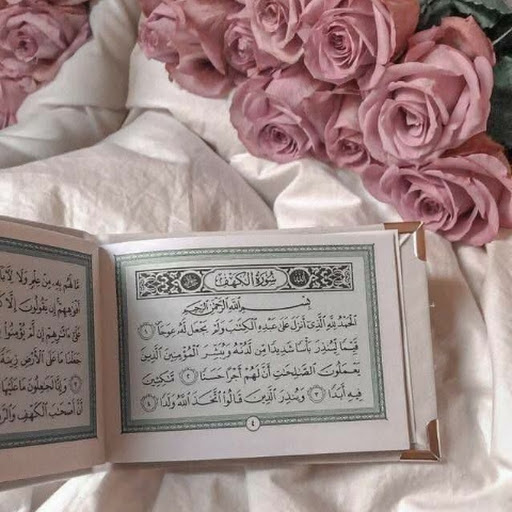 سُورَةُ الكَهْفِ
بِسْمِ اللَّهِ الرَّحْمَٰنِ الرَّحِيمِ
الْحَمْدُ لِلَّهِ الَّذِي أَنزَلَ عَلَىٰ عَبْدِهِ الْكِتَٰبَ وَلَمْ يَجْعَل لَّهُ عِوَجًا ١
قَيِّمًا لِّيُنذِرَ بَأْسًا شَدِيدًا مِّن لَّدُنْهُ وَيُبَشِّرَ الْمُؤْمِنِينَ الَّذِينَ
يَعْمَلُونَ الصَّٰلِحَٰتِ أَنَّ لَهُمْ أَجْرًا حَسَنًا ٢ مَّٰكِثِينَ
فِيهِ أَبَدًا ٣ وَيُنذِرَ الَّذِينَ قَالُوا اتَّخَذَ اللَّهُ وَلَدًا ٤
٤
مَّا لَهُم بِهِ مِنْ عِلْمٍ وَلَا
أَفْوَٰهِهِمْ إِن يَقُولُونَ إِلَّا
عَلَىٰ ءَاثَٰرِهِمْ إِن لَّمْ يُؤْمِنُوا
جَعَلْنَا مَا عَلَى الْأَرْضِ زِينَةً
وَإِنَّا لَجَٰعِلُونَ مَا عَلَيْهَا
أَنَّ أَصْحَٰبَ الْكَهْفِ